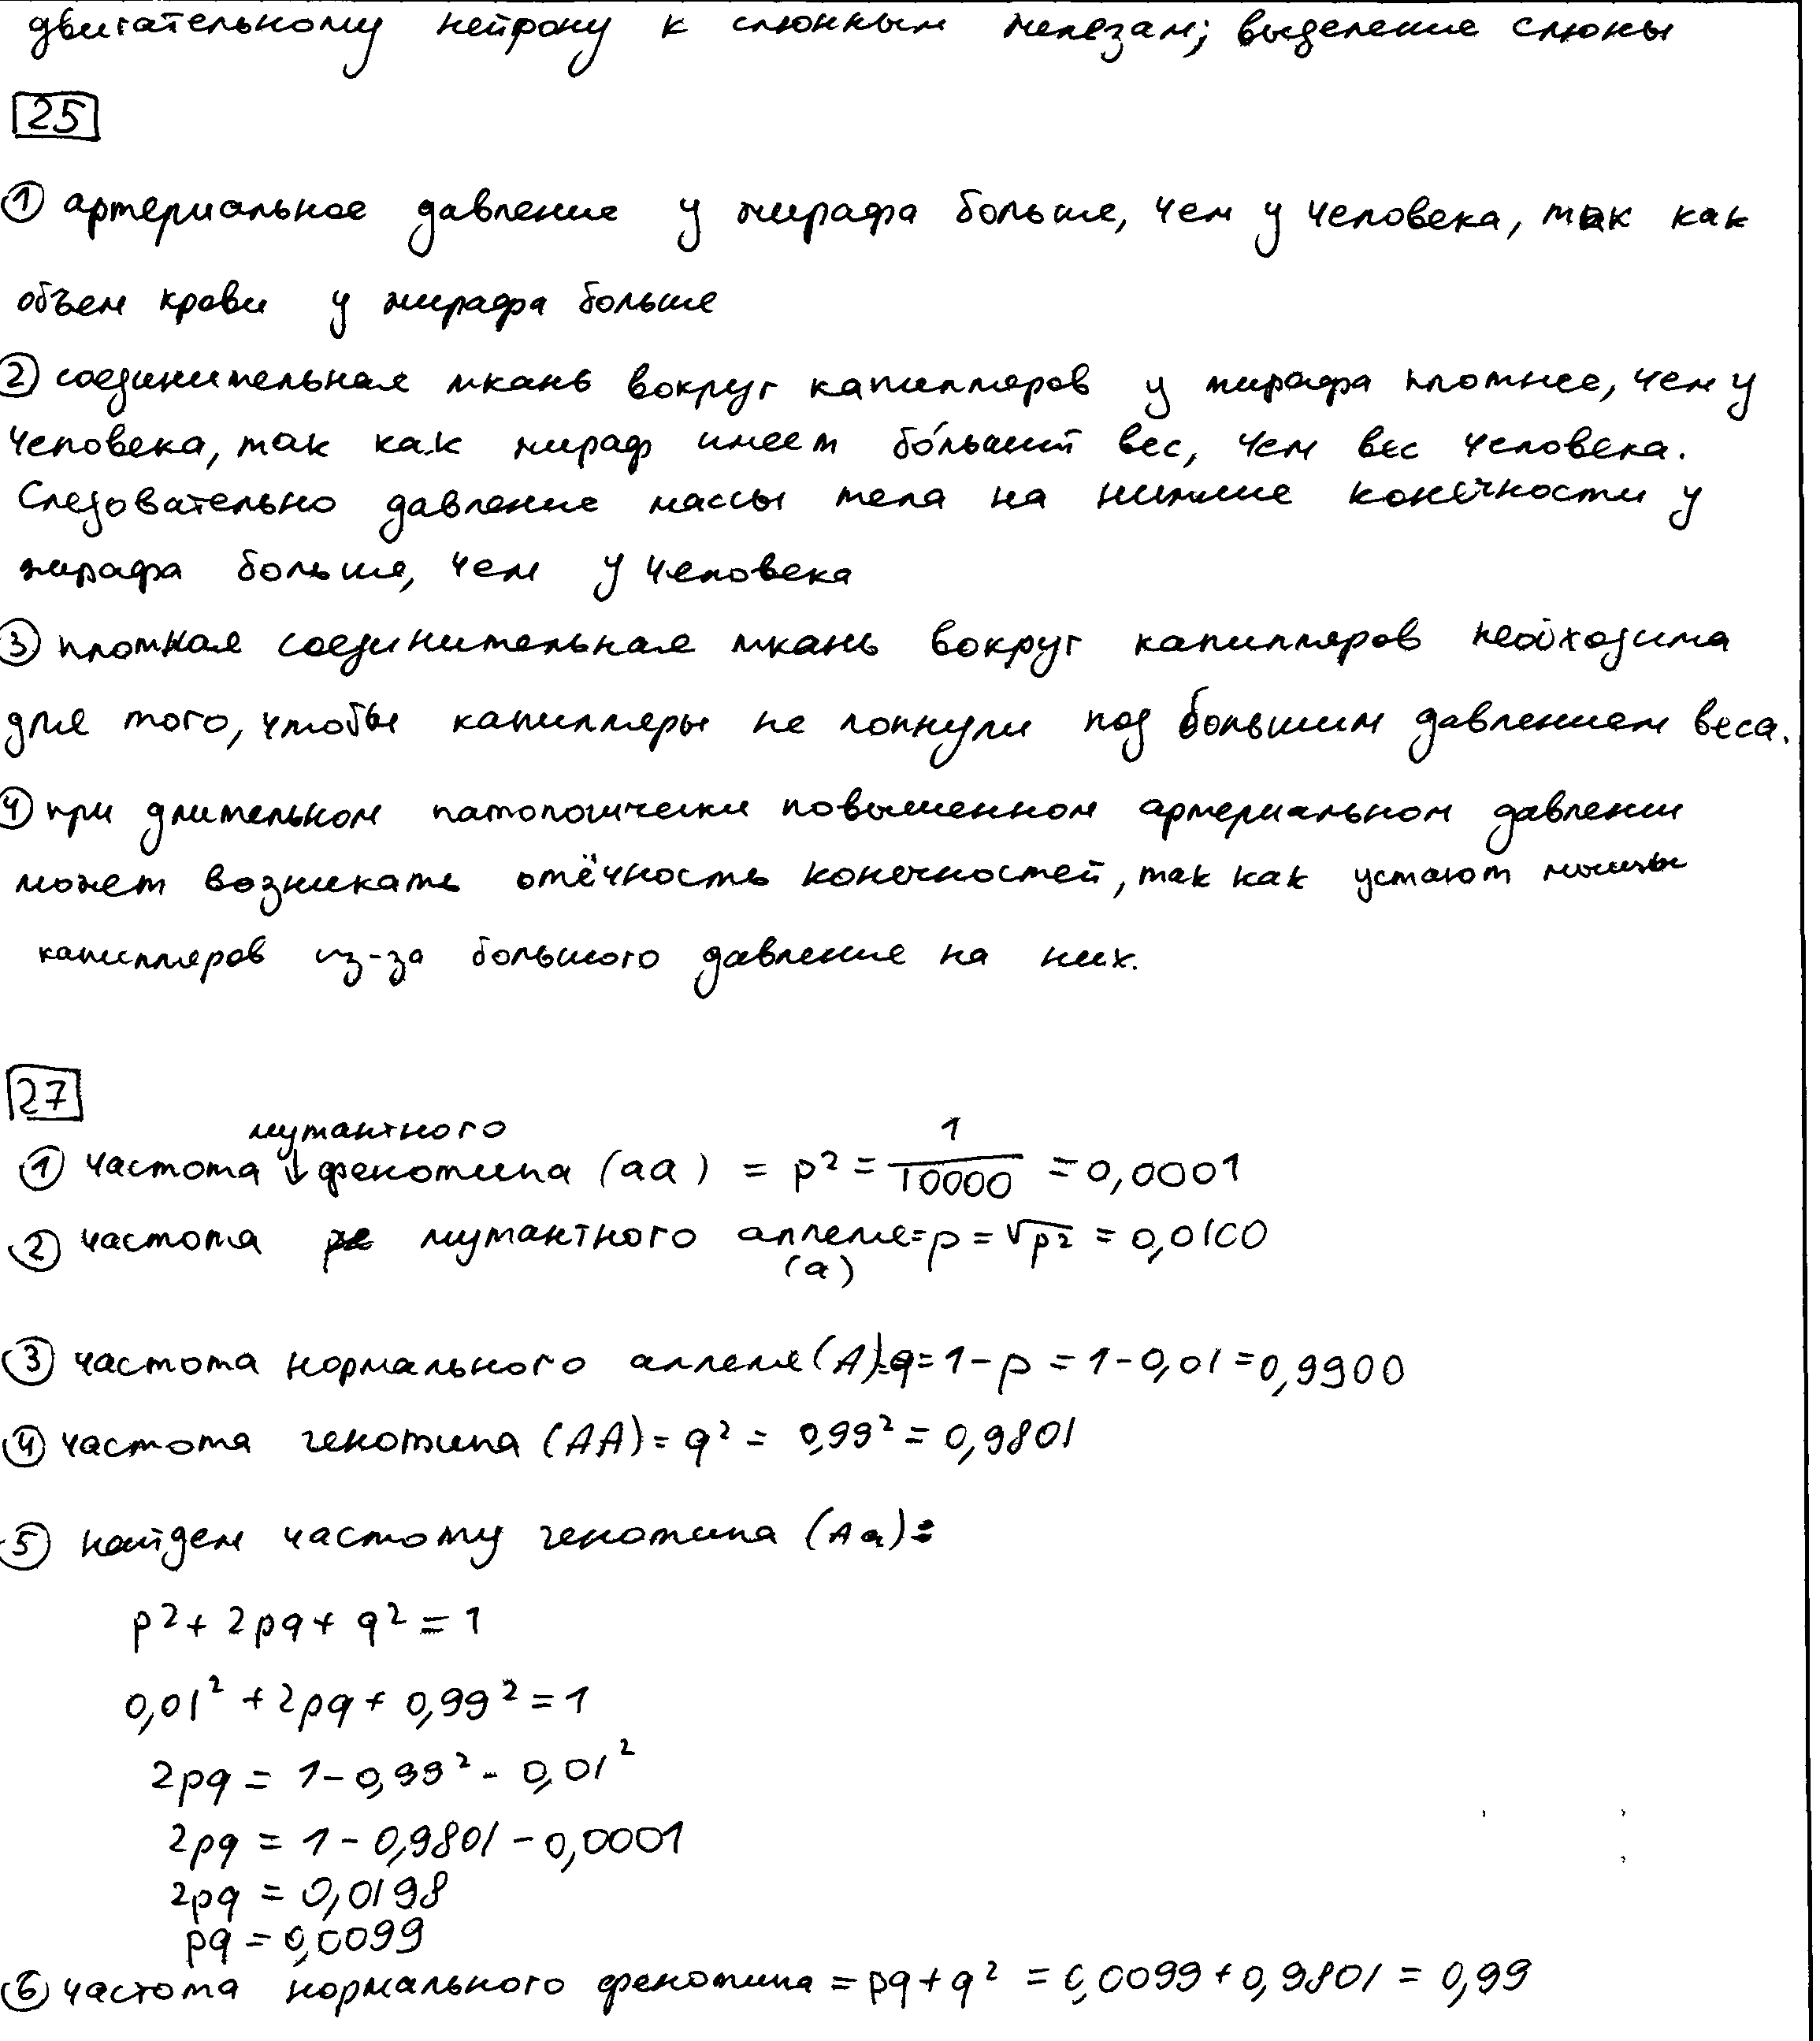 двигательному нейрону к слюнным железам; выделение слюны
25
① артериальное давление у жирафа больше, чем у человека, так как
объем крови у жирафа больше
② соединительная ткань вокруг капилляров у жирафа плотнее, чем у
человека, так как жираф имеет бо́льший вес, чем вес человека.
Следовательно давление массы тела на нижние конечности у
жирафа больше, чем у человека
③ плотная соединительная ткань вокруг капилляров необходима
для того, чтобы капилляры не лопнули под большим давлением веса.
④ при длительном патологически повышенном артериальном давлении
может возникать отёчность конечностей, так как устают мышцы
капилляров из-за большого давления на них.
27
мутантного
① частота ↓ фенотипа (aa) = p² = 1/10000 = 0,0001
② частота мутантного аллеля = p = √p² = 0,0100
(a)
③ частота нормального аллеля (A) = q = 1 - p = 1 - 0,01 = 0,9900
④ частота генотипа (AA) = q² = 0,99² = 0,9801
⑤ найдем частоту генотипа (Aa) =
p² + 2pq + q² = 1
0,01² + 2pq + 0,99² = 1
2pq = 1 - 0,99² - 0,01²
2pq = 1 - 0,9801 - 0,0001
2pq = 0,0198
pq = 0,0099
⑥ частота нормального фенотипа = pq + q² = 0,0099 + 0,9801 = 0,99